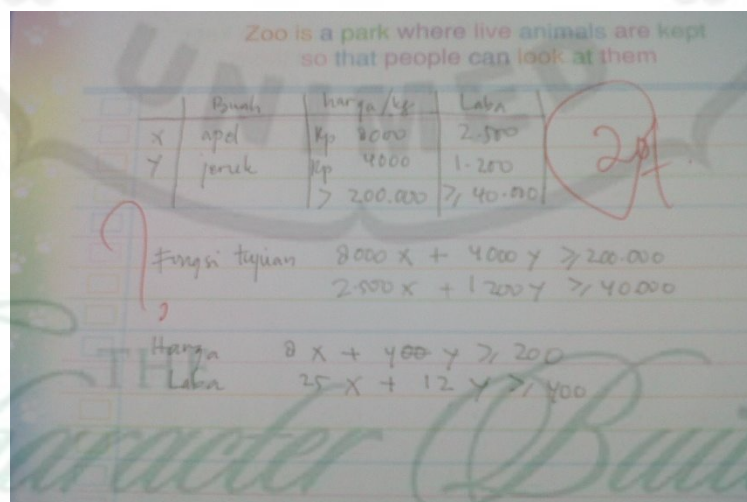 Zoo is a park where live animals are kept
so that people can look at them
UNIMED
Buah harga/kg Laba
X apel Rp 8000 2.500
Y jeruk Rp 4000 1.200
≥ 200.000 ≥ 40.000
Fungsi tujuan 8000 X + 4000 Y ≥ 200.000
2.500 X + 1200 Y ≥ 40.000
?
Harga 8 X + 400 Y ≥ 200
Laba 25 X + 12 Y ≥ 400
THE
Character Buil